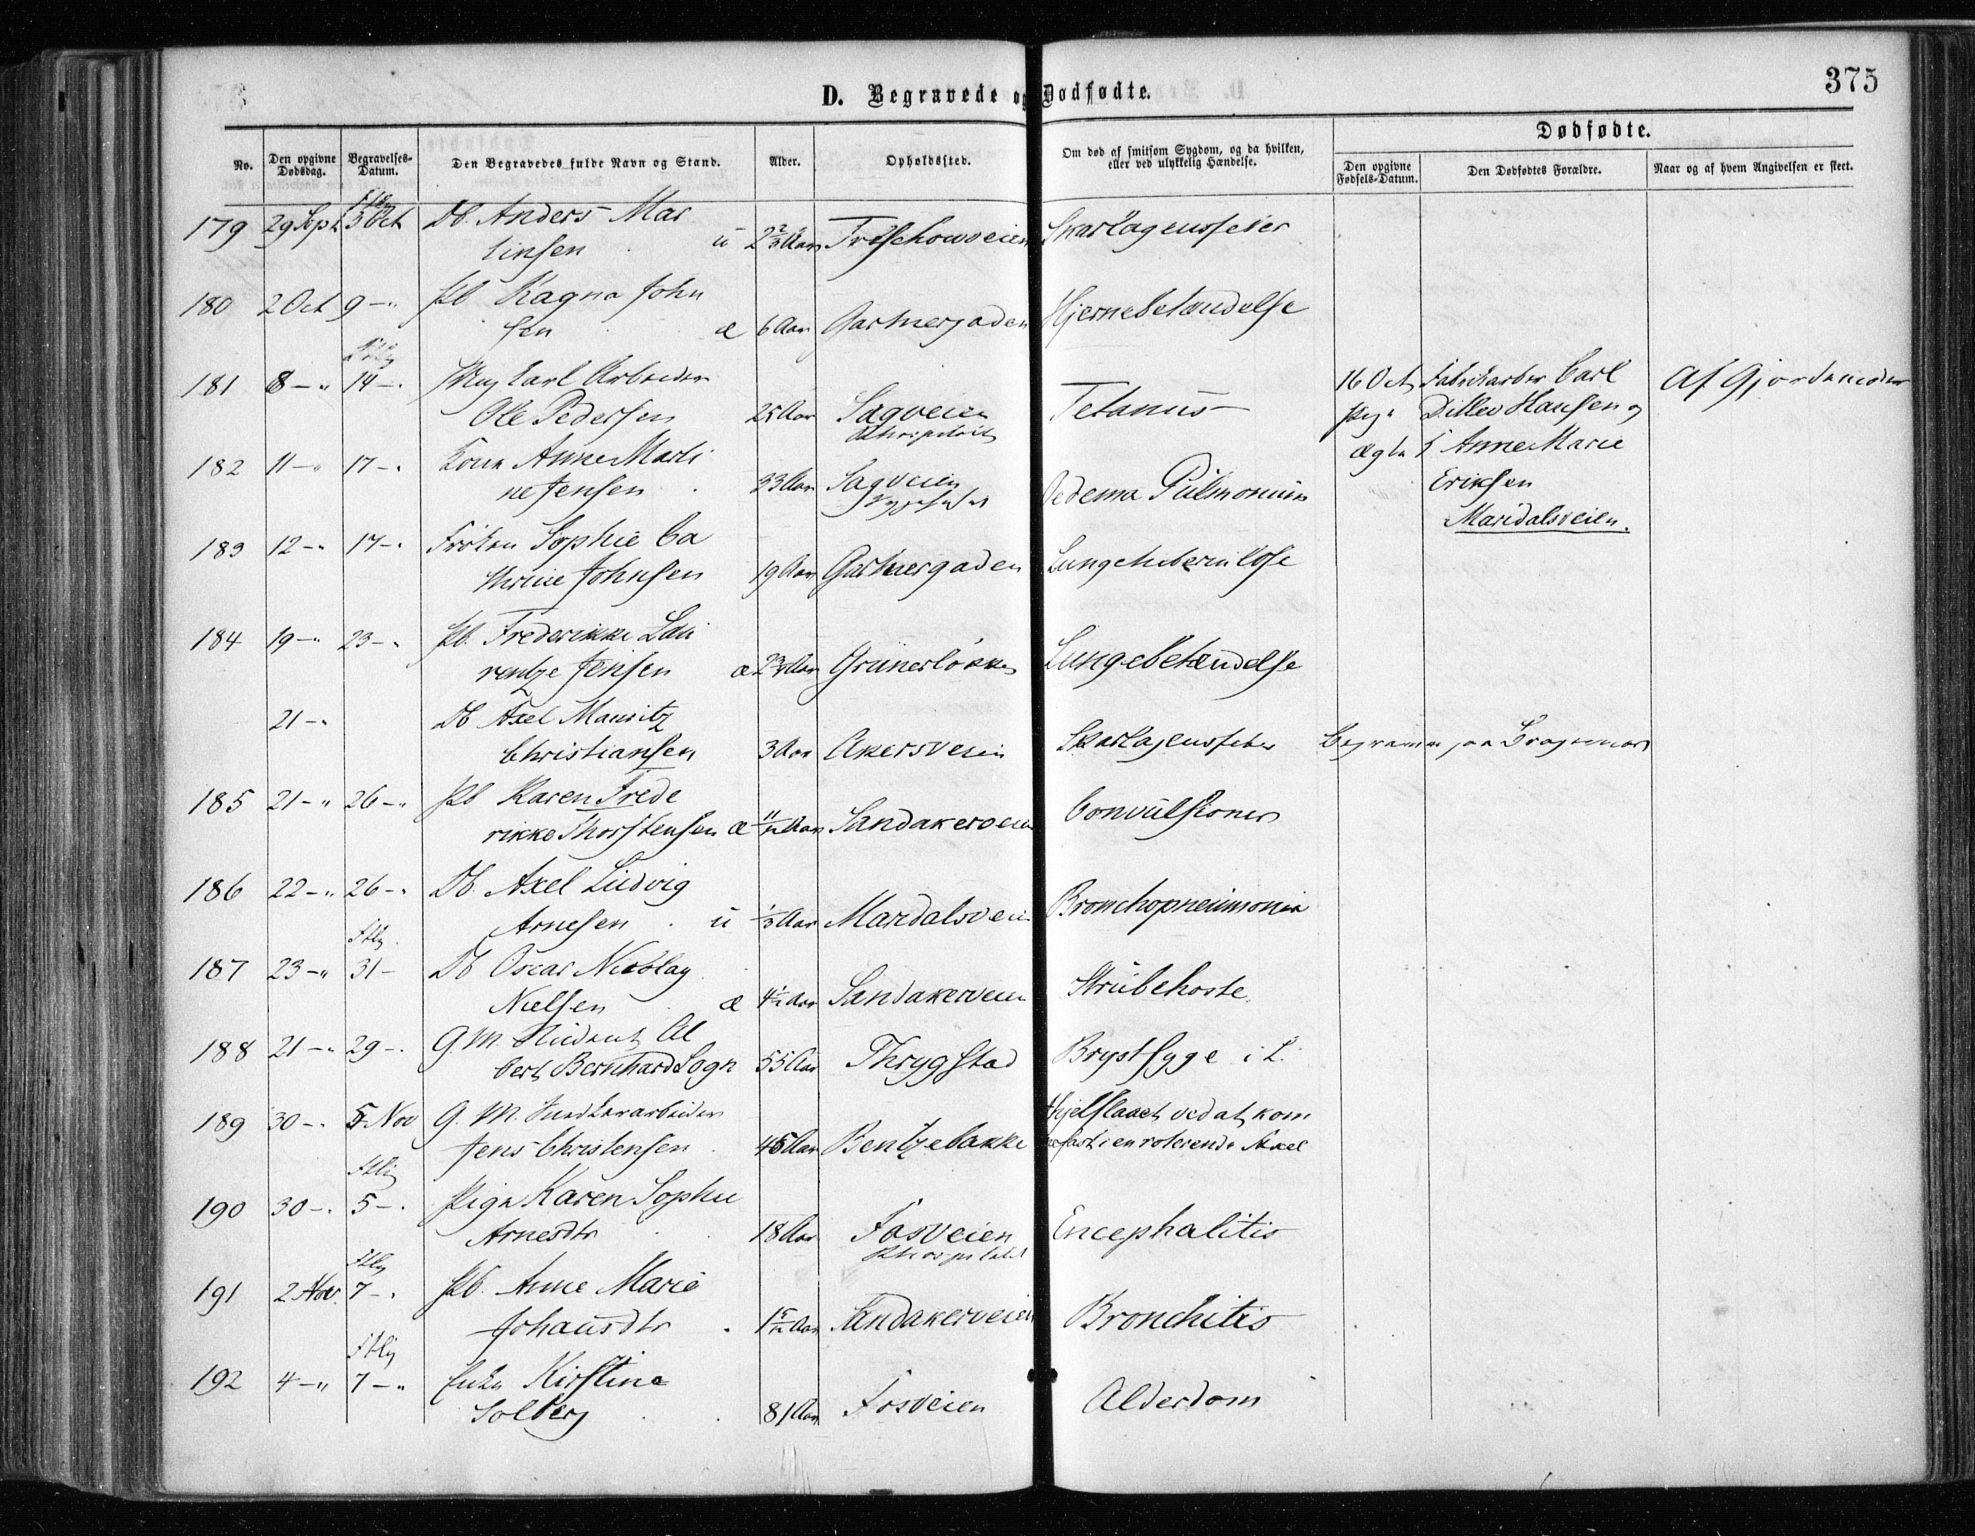 375
D. Begravede og Dødfødte.
Dødfødte.
No. Den opgivne Dødsdag. Begravelses-Datum. Den Begravedes fulde Navn og Stand. Alder. Opholdssted. Om død af smitsom Sygdom, og da hvilken, eller ved ulykkelig Hændelse. Den opgivne Fødsels-Datum. Den Dødfødtes Forældre. Naar og af hvem Angivelsen er skeet.
179 29 Sept 3 Oct Db. Anders Mar
linsen u 2 2/3 Aar Trøschowveien Skarlagensfeber
180 2 Oct 9 -" Pb Ragna John
sen æ 6 Aar Gartnergaden Hjernebetændelse
181 8 -" 14 -" Ungkarl Arbeider 16 Oct Fabrikarber Carl Af Gjordemoder
Ole Pedersen 25 Aar Sagveien Tetanus Pig Ditlev Hansen og
Rhospitalet
182 11 -" 17 -" Kone Anne Marti ægte Anne Marie
ne Jensen 33 Aar Sagveien Oedema Pulmonum Eriksen
Maridalsveien.
183 12 -" 17 -" Frøken Sophie Ca
thrine Johnsen 19 Aar Gartnergaden Lungetuberculose
184 19 -" 23 -" Pb. Frederikke Lau
rentze Jensen æ 2 3/4 Aar Grünerløkken Lungebetændelse
21 -" Db Axel Mauritz
Christiansen 3 Aar Akersveien Skarlagensfeber Begraven paa Bragernes
185 21 -" 26 -" Pb Karen Frede
rikke Thorstensen æ 11/12 Aar Sandakerveien Convulsioner
186 22 -" 26 -" Db. Axel Ludvig
Arnesen u 1/3 Aar Maridalsveien Bronchopneumonia
187 23 -" 31 - Db Oscar Nicolay
Nielsen æ 4 1/2 Aar Sandakerveien Strubehoste.
188 21 -" 29 -" G. M. Student Al
bert Bernhard Sogn 55 Aar Thrygstad Brystsyge
189 30 -" 5 Nov G. M.
Jens Christensen 45 Aar Bentzebakke Ihjelslaaet ved at kom
me fast i en roterende Axel
190 30 -" 5 -" Pige Karen Sophie
Arnesdtr 18 Aar Fosveien Encephalitis
Rhospitalet
191 2 Nov. 7 -" Pb. Anne Marie
Johansdtr 1 5/12 Aar Sandakerveien Bronchitis
192 4 -" 7 -" Enke Kirstine
Solberg 81 Aar Fosveien Alderdom